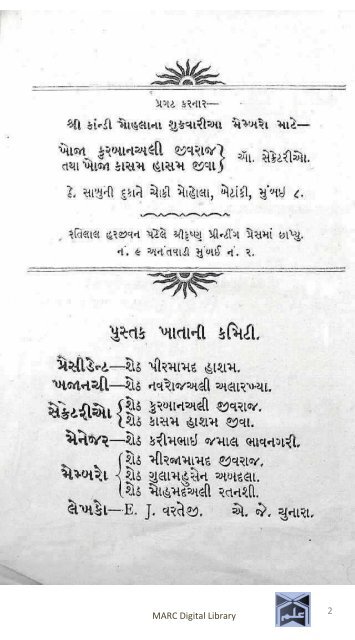 પ્રગટ કરનાર—
શ્રી કાંન્દી મોહલાના શુક્રવારીઆ મેમ્બરો માટે—
ખોજા કુરબાનઅલી જીવરાજ
તથા ખોજા કાસમ હાસમ જીવા } ઓ. સેક્રેટરીઓ.
ઠે. સાબુની દુકાને ચોકી મોહોલા, ખેટાંકી, મુંબઇ ૮.
રતિલાલ હરજીવન પટેલે શ્રીકૃષ્ણ પ્રીન્ટીંગ પ્રેસમાં છાપ્યુ.
નં. ૯ અનંતવાડી મુંબઈ નં. ૨.
પુસ્તક ખાતાની કમિટી.
પ્રેસીડેન્ટ—શેઠ પીરમામદ હાશમ.
ખજાનચી—શેઠ નવરોજઅલી અલારખ્યા.
સેક્રેટરીઓ { શેઠ કુરબાનઅલી જીવરાજ.
શેઠ કાસમ હાશમ જીવા.
મેનેજર—શેઠ કરીમભાઈ જમાલ ભાવનગરી.
મેમ્બરો { શેઠ મીરજામામદ જીવરાજ.
શેઠ ગુલામહુસેન અબદલા.
શેઠ મોહમદઅલી રતનશી.
લેખકો—E. J. વરતેજી. એ. જે. ચુનારા.
MARC Digital Library
2